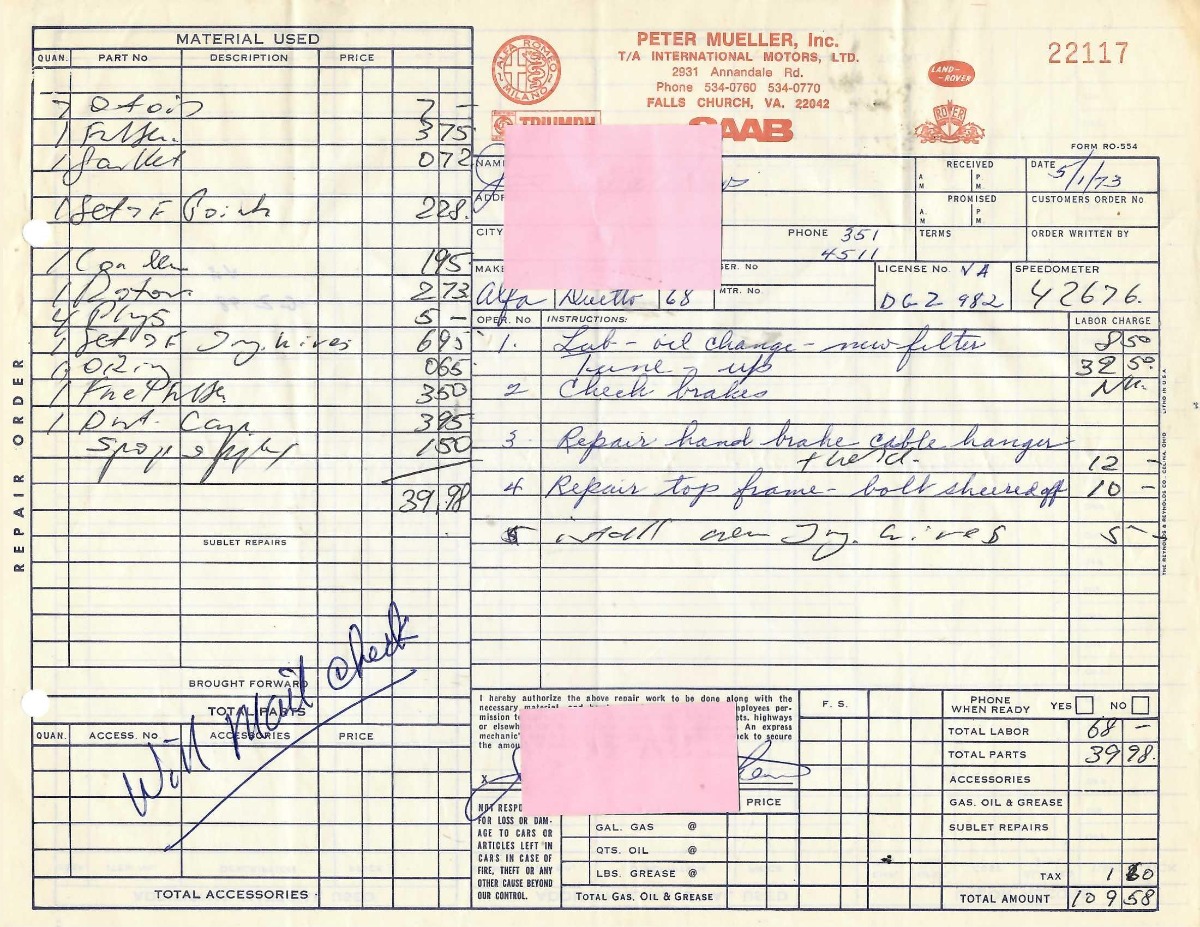 MATERIAL USED
QUAN. PART No DESCRIPTION PRICE
7 7 -
1 Filter 3 75
1 Gasket 0 72
1 Set of Points 2 28
1 Conden 1 95
1 Rotor 2 73
4 Plugs 5 -
1 Set of Ing. Wires 6 95
1 O Ring 0 65
1 3 50
1 Dist. Cap 3 95
1 50
39,98
SUBLET REPAIRS
BROUGHT FORWARD
TOTAL PARTS
QUAN. ACCESS. No ACCESSORIES PRICE
Will Mail Check
TOTAL ACCESSORIES
REPAIR ORDER
ALFA ROMEO MILANO
TRIUMPH
PETER MUELLER, Inc.
T/A INTERNATIONAL MOTORS, LTD.
2931 Annandale Rd.
Phone 534-0760 534-0770
FALLS CHURCH, VA. 22042
SAAB
LAND-ROVER
ROVER
22117
FORM RO-554
NAME
ADD
CITY
PHONE 351 4511
RECEIVED A M P M
DATE 5/1/73
PROMISED A. M P M
CUSTOMERS ORDER No
TERMS
ORDER WRITTEN BY
MAKE Alfa Duetto 68
SER. No
MTR. No
LICENSE No. VA DGZ 982
SPEEDOMETER 42676.
OPER. No INSTRUCTIONS: LABOR CHARGE
1. Lub - oil change - new filter 8 50
Tune - up 32 50
2 Check brakes
3 Repair hand brake cable hanger
12 -
4 Repair top frame - bolt sheered off 10 -
5 install new Ing. Wires 5 -
I hereby authorize the above repair work to be done along with the
necessary
mission to
or elsewh
mechanic'
the amou
employees per-
highways
An express
to secure
X
NOT RESP
FOR LOSS OR DAM-
AGE TO CARS OR
ARTICLES LEFT IN
CARS IN CASE OF
FIRE, THEFT OR ANY
OTHER CAUSE BEYOND
OUR CONTROL.
PRICE
GAL. GAS @
QTS. OIL @
LBS. GREASE @
TOTAL GAS, OIL & GREASE
F. S.
PHONE WHEN READY YES NO
TOTAL LABOR 68 -
TOTAL PARTS 39 98.
ACCESSORIES
GAS. OIL & GREASE
SUBLET REPAIRS
TAX 1 60
TOTAL AMOUNT 109 58